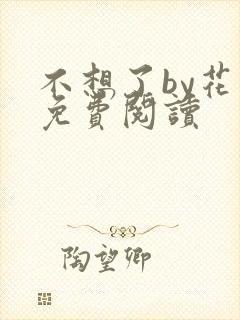 不想了by花
免費閱讀
陶望卿